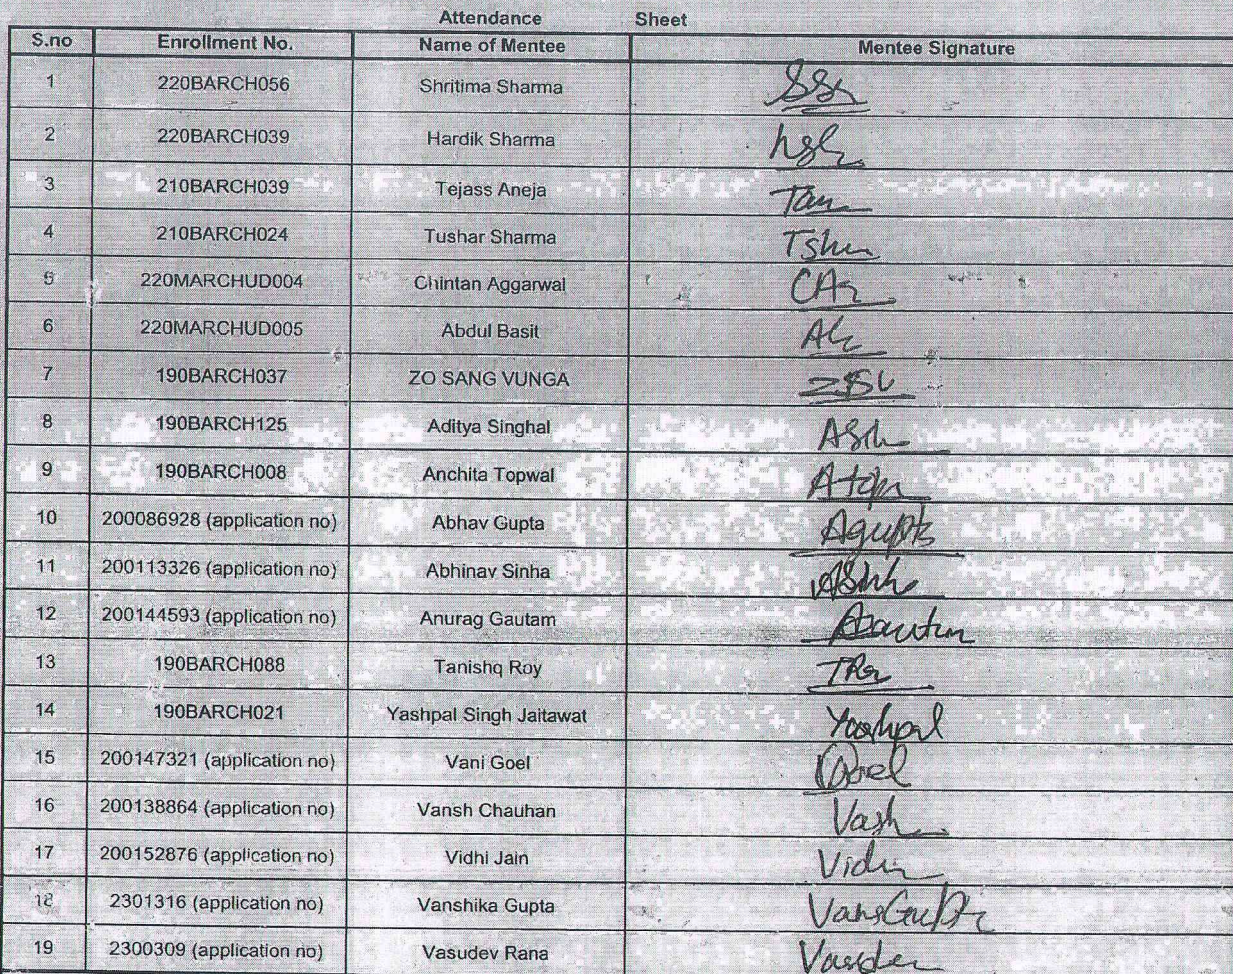 Attendance Sheet
S.no Enrollment No. Name of Mentee Mentee Signature
1 220BARCH056 Shritima Sharma SSh
2 220BARCH039 Hardik Sharma
3 210BARCH039 Tejass Aneja Tan
4 210BARCH024 Tushar Sharma Tshu
5 220MARCHUD004 Chintan Aggarwal
6 220MARCHUD005 Abdul Basit
7 190BARCH037 ZO SANG VUNGA ZSV
8 190BARCH125 Aditya Singhal
9 190BARCH008 Anchita Topwal
10 200086928 (application no) Abhav Gupta Agupta
11 200113326 (application no) Abhinav Sinha
12 200144593 (application no) Anurag Gautam
13 190BARCH088 Tanishq Roy
14 190BARCH021 Yashpal Singh Jaitawat Yashpal
15 200147321 (application no) Vani Goel
16 200138864 (application no) Vansh Chauhan Vash
17 200152876 (application no) Vidhi Jain Vidhi
18 2301316 (application no) Vanshika Gupta VansGupta
19 2300309 (application no) Vasudev Rana Vasudev